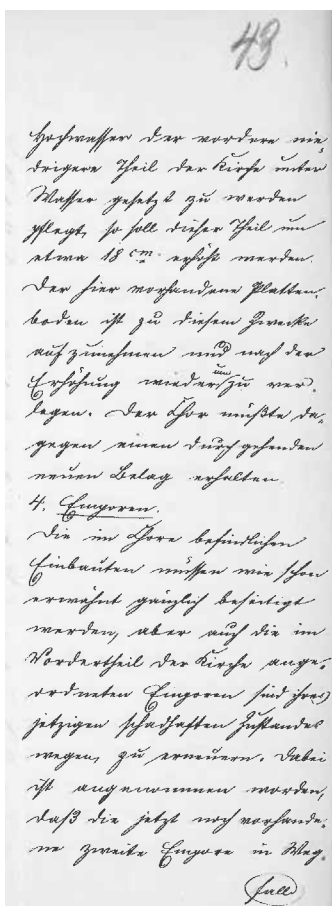 43.
Hochwasser der vordere nie-
drigere Theil der Kirche unter
Wasser gesetzt zu werden
pflegt, so soll dieser Theil um
etwa 18 cm erhöht werden.
Der hier vorhandene Platten-
boden ist zu diesem Zwecke
aufzunehmen und nach der
Erhöhung wiederum zu ver-
legen. Der Chor müßte da-
gegen einen durchgehenden
neuen Belag erhalten.
4. Emporen.
Die im Chore befindlichen
Einbauten müssen wie schon
erwähnt gänzlich beseitigt
werden, aber auch die im
Vordertheil der Kirche ange-
ordneten Emporen sind ihres
jetzigen schadhaften Zustandes
wegen, zu erneuern. Dabei
ist angenommen worden,
daß die jetzt noch vorhande-
ne zweite Empore in Weg-
fall